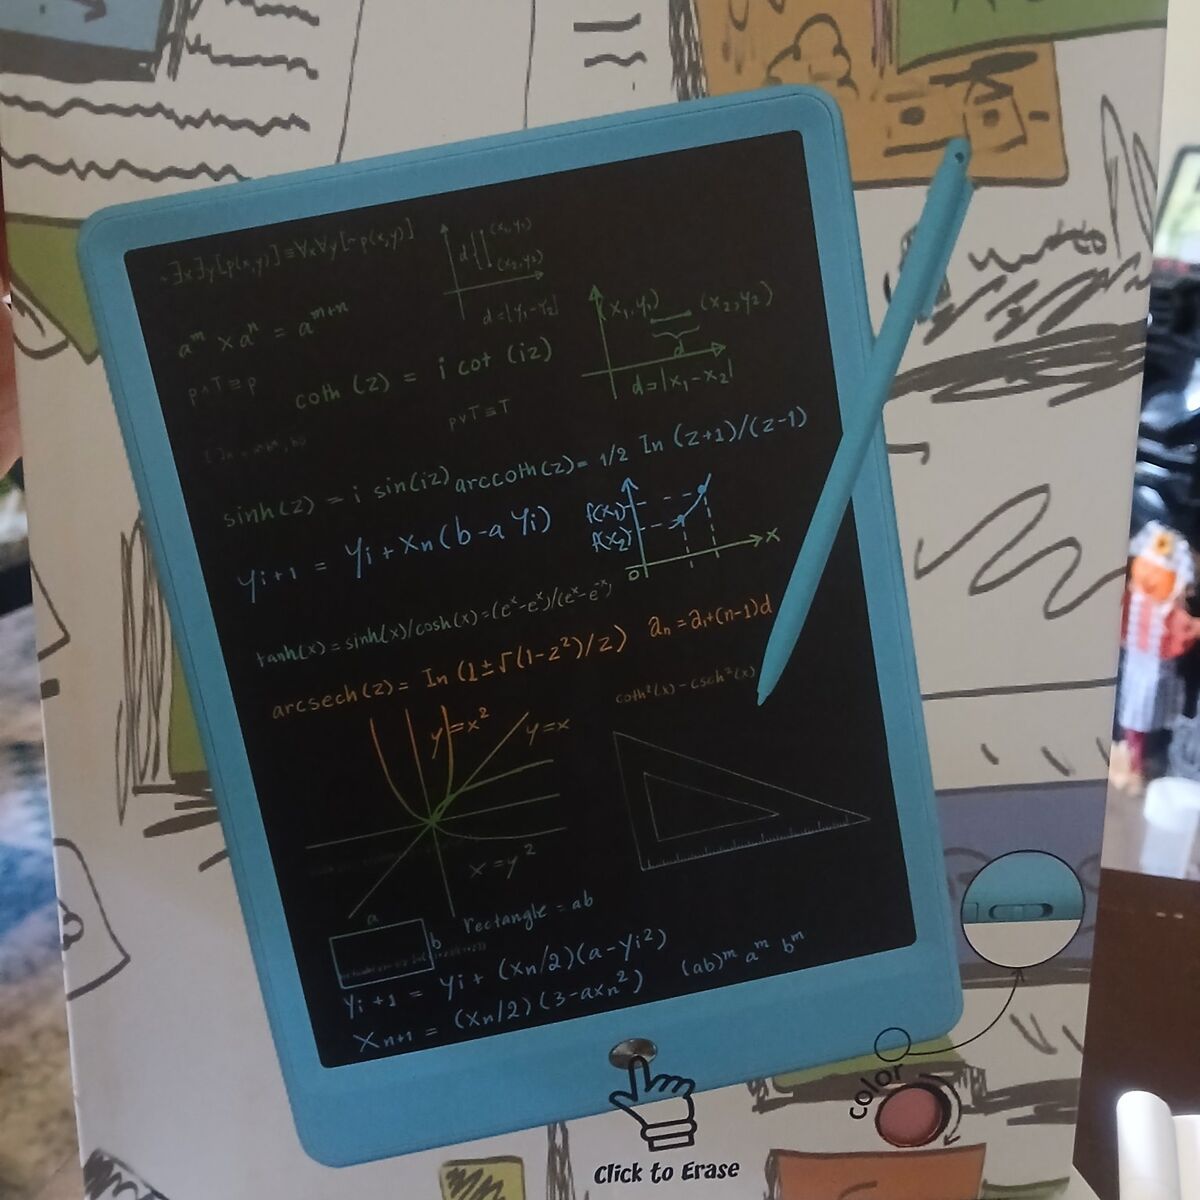 ~∃x∃y[p(x,y)]≡∀x∀y[~p(x,y)]
d
(x1,y1)
(x2,y2)
d=|y1-y2|
aᵐ x aⁿ = aᵐ⁺ⁿ
(x1,y1)
(x2,y2)
d
d=|x1-x2|
p∧T≡p
coth (z) = i cot (iz)
p∨T≡T
sinh(z) = i sin(iz)
arccoth(z)= 1/2 In (z+1)/(z-1)
yi+1 = yi+xn(b-a yi)
f(x1)
f(x2)
0
x
tanh(x)=sinh(x)/cosh(x)=(eˣ-eˣ)/(eˣ-e⁻ˣ)
arcsech(z)= In (1±√(1-z²)/z)
an=a1+(n-1)d
coth²(x)-csch²(x)
y=x²
y=x
x=y²
a
b
rectangle = ab
yi+1 = yi + (xn/2)(a-yi²)
(ab)ᵐ aᵐ bᵐ
xn+1 = (xn/2)(3-axn²)
color
Click to Erase